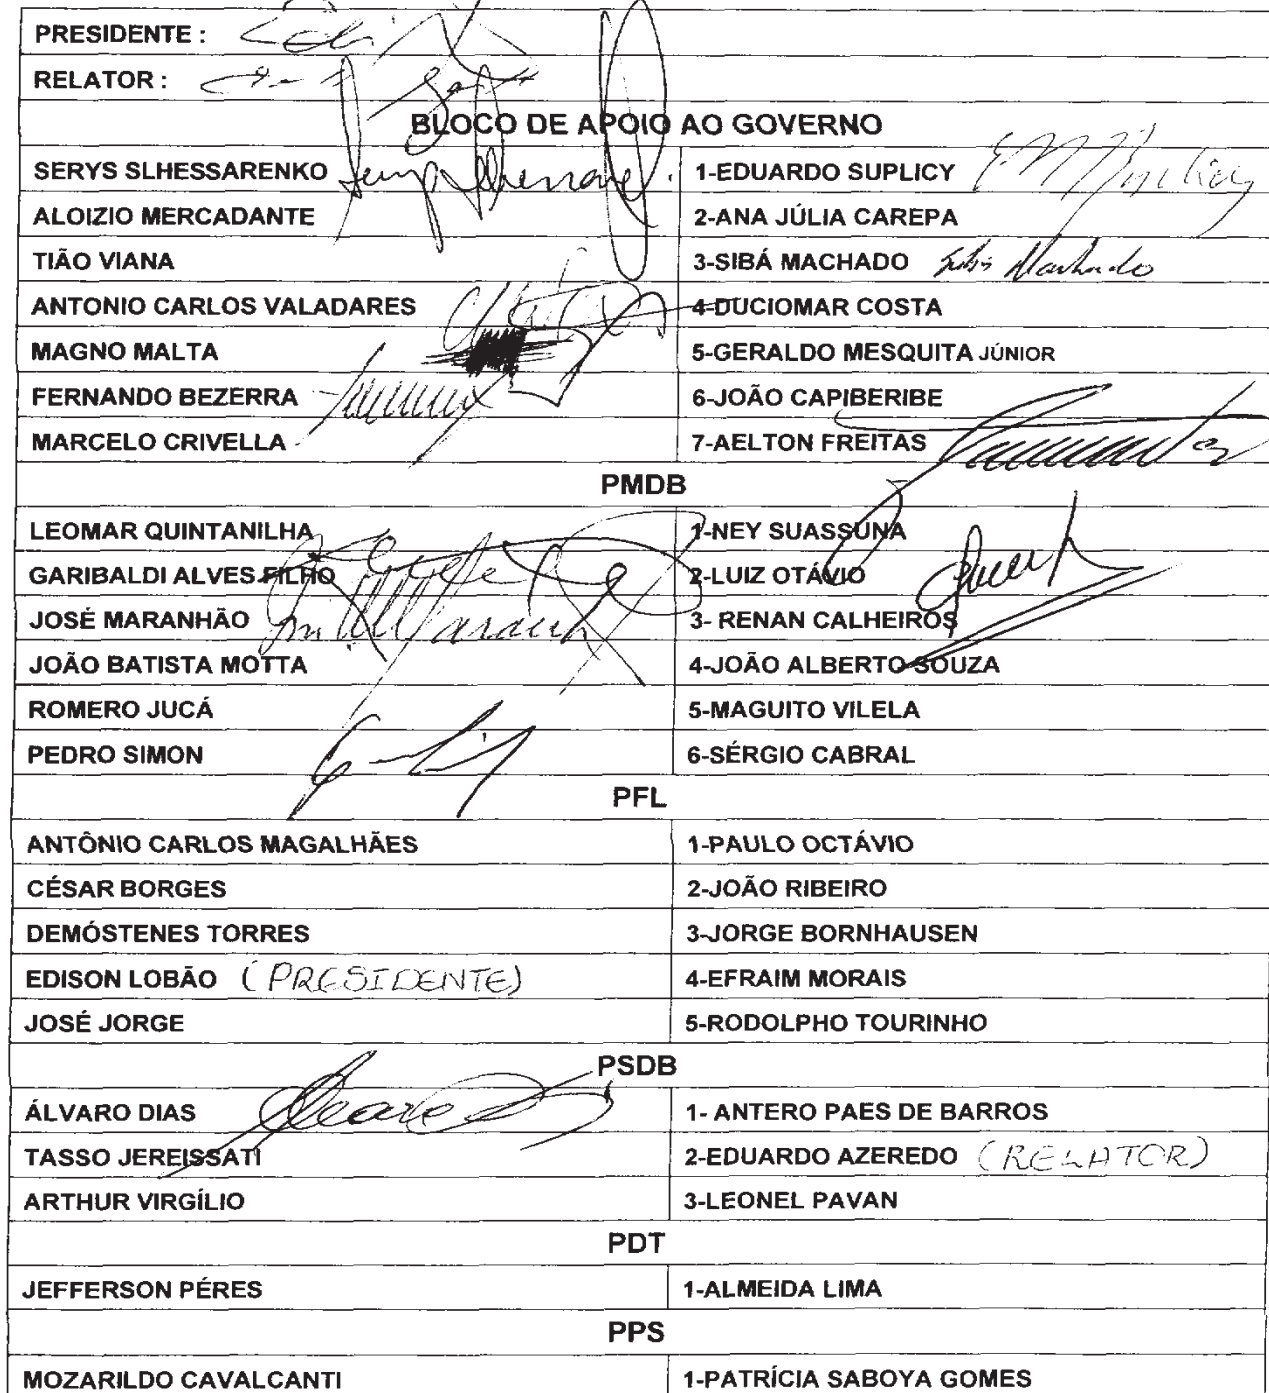 PRESIDENTE :
RELATOR :
BLOCO DE APOIO AO GOVERNO
SERYS SLHESSARENKO 1-EDUARDO SUPLICY
ALOIZIO MERCADANTE 2-ANA JÚLIA CAREPA
TIÃO VIANA 3-SIBÁ MACHADO Sibá Machado
ANTONIO CARLOS VALADARES 4-DUCIOMAR COSTA
MAGNO MALTA 5-GERALDO MESQUITA JÚNIOR
FERNANDO BEZERRA 6-JOÃO CAPIBERIBE
MARCELO CRIVELLA 7-AELTON FREITAS
PMDB
LEOMAR QUINTANILHA 1-NEY SUASSUNA
GARIBALDI ALVES FILHO 2-LUIZ OTÁVIO
JOSÉ MARANHÃO 3- RENAN CALHEIROS
JOÃO BATISTA MOTTA 4-JOÃO ALBERTO SOUZA
ROMERO JUCÁ 5-MAGUITO VILELA
PEDRO SIMON 6-SÉRGIO CABRAL
PFL
ANTÔNIO CARLOS MAGALHÃES 1-PAULO OCTÁVIO
CÉSAR BORGES 2-JOÃO RIBEIRO
DEMÓSTENES TORRES 3-JORGE BORNHAUSEN
EDISON LOBÃO (PRESIDENTE) 4-EFRAIM MORAIS
JOSÉ JORGE 5-RODOLPHO TOURINHO
PSDB
ÁLVARO DIAS 1- ANTERO PAES DE BARROS
TASSO JEREISSATI 2-EDUARDO AZEREDO (RELATOR)
ARTHUR VIRGÍLIO 3-LEONEL PAVAN
PDT
JEFFERSON PÉRES 1-ALMEIDA LIMA
PPS
MOZARILDO CAVALCANTI 1-PATRÍCIA SABOYA GOMES